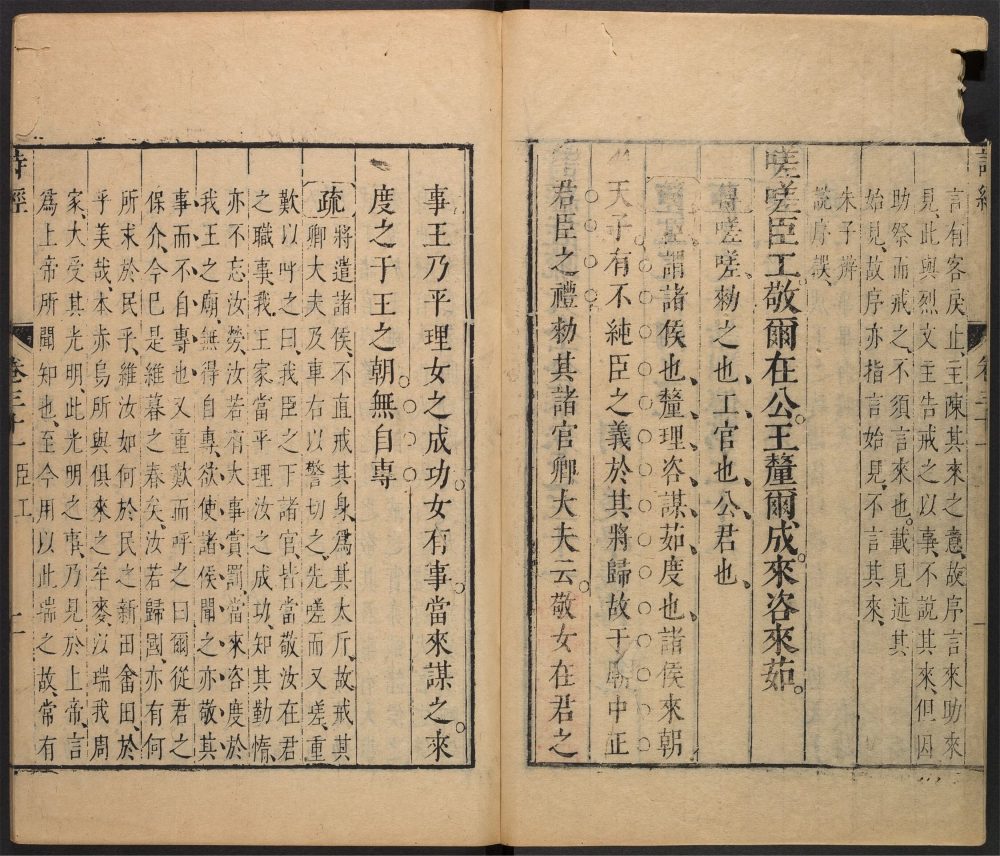 言有客戾止、王陳其來之意、故序言來助來
見、此與烈文主告戒之以事、不說其來、但因
助祭而戒之、不須言來也。載見述其
始見、故序亦指言始見、不言其來、
朱子辨
說序誤、
嗟嗟臣工。敬爾在公。王釐爾成。來咨來茹。
嗟嗟、勑之也、工、官也、公、君也、
謂諸侯也、釐、理、咨、謀、茹、度也、諸侯來朝
天子有不純臣之義、於其將歸、故于廟中正
君臣之禮、勑其諸官卿大夫云。敬女在君之
事、王乃平理女之成功。女有事。當來謀之。來
度之于王之朝。無自專
疏 將遣諸侯、不直戒其身、爲其太斥、故戒其
卿大夫及車右以警切之、先嗟而又嗟、重
歎以呼之曰、我臣之下諸官、皆當敬汝在君
之職事、我王家當平理汝之成功、知其勤惰、
亦不忘汝勞、汝若有大事賞罰、當來咨度於
我王之廟、無得自專、欲使諸侯聞之、亦敬其
事而不自專也、又重歎而呼之曰、爾從君之
保介、今已是維暮之春矣、汝若歸國、亦有何
所求於民乎、維汝如何於民之新田畬田、於
乎美哉、本赤烏所與俱來之牟麥、以瑞我周
家、大受其光明、此光明之事、乃見於上帝、言
爲上帝所聞知也、至今用以此瑞之故、常有
詩經
卷三十一 臣工